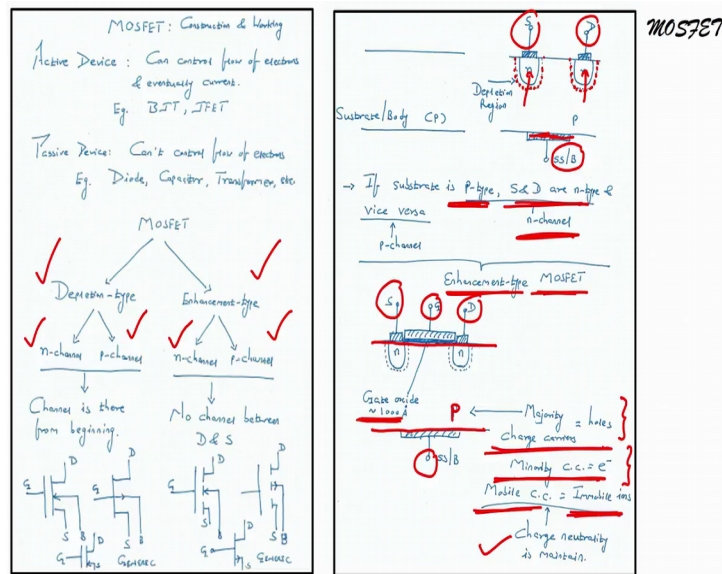 MOSFET
MOSFET: Construction & Working
Active Device: Can control flow of electrons
& eventually current.
Eg. BJT, JFET
Passive Device: Can't control flow of electrons
Eg. Diode, Capacitor, Transformer, etc.
MOSFET
Depletion-type
Enhancement-type
n-channel
p-channel
n-channel
p-channel
Channel is there
from beginning.
No channel between
D & S
G
D
S
B
D
G
S
B
G
D
S
B
D
S
B
G
D
S
GENERIC
G
D
S
GENERIC
S
D
n
n
Depletion
Region
Susbrate/Body (P)
P
SS/B
→ If substrate is P-type, S&D are n-type &
vice versa
n-channel
p-channel
Enhancement-type MOSFET
S
G
D
n
n
Gate oxide
≈ 1000 Å
P
Majority
charge carriers
= holes
SS/B
Minority c.c. = e⁻
Mobile c.c. = Immobile ions
Charge neutrality
is maintain.